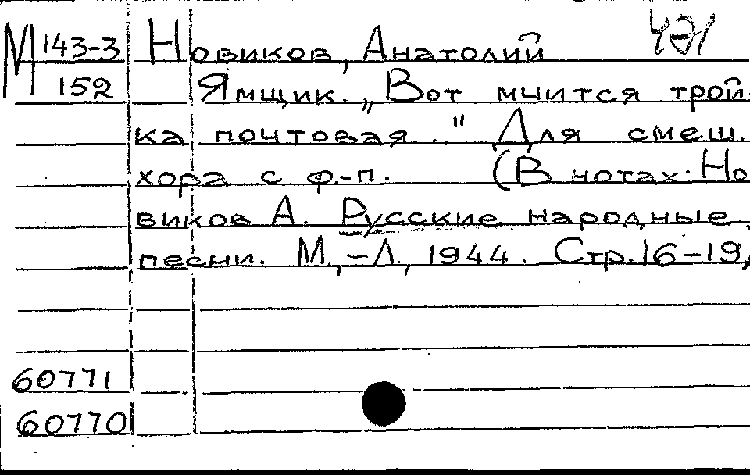 М 143-3 Новиков, Анатолий 421
152 Ямщик. „Вот мчится трой
ка почтовая." Для смеш.
хора с ф.-п. (В нотах: Но
виков А. Русские народные
песни. М.,-Л., 1944. Стр.16-19,
60771
60770